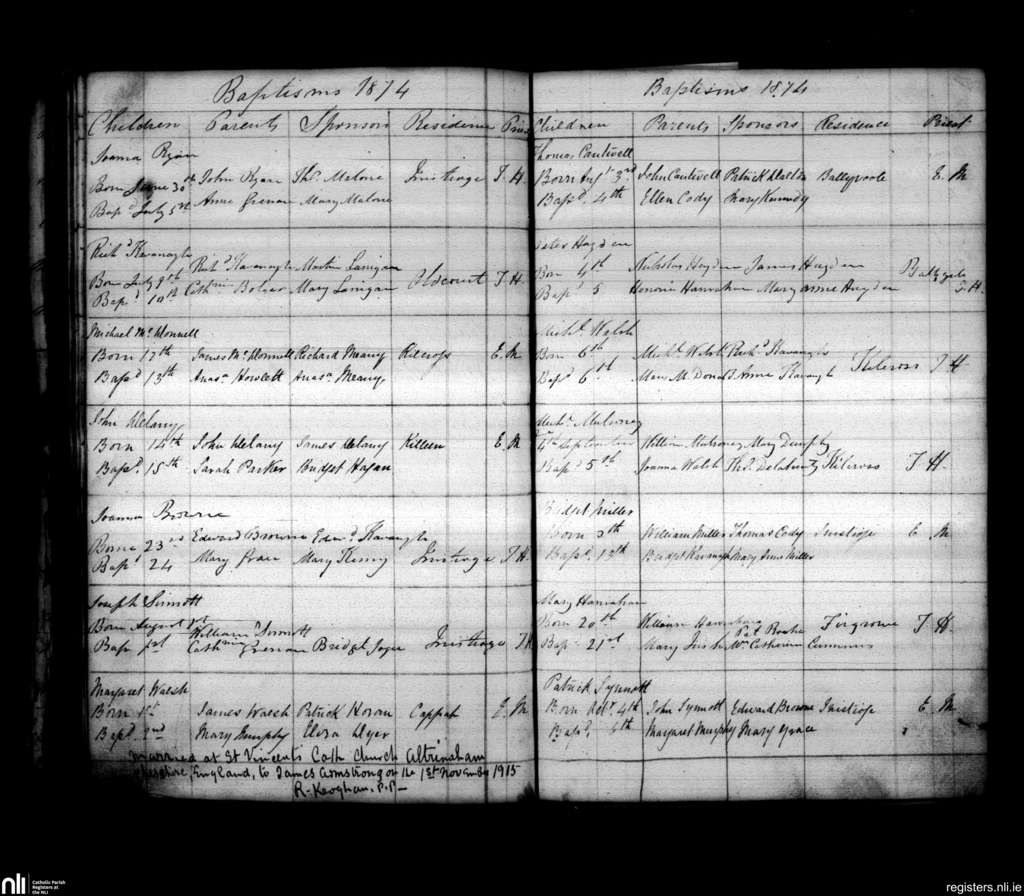 Baptisms 1874
Children Parents Sponsors Residence Priest
Joanna Ryan
Born June 30th John Ryan Thos. Malone Inistioge T. H.
Bapd July 5th Anne Grenan Mary Malone
Richd Kavanagh
Born July 9th Richd Kavanagh Martin Lanigan Oldcourt T. H.
Bapd 10th Cathrin Bolger Mary Lanigan
Michael McDonnell
Born 12th James McDonnell Richard Meany Kilcross E. M
Bapd 13th Anasa Howlett Anasa Meany
John Delany
Born 14th John Delany James Delany Killeen E. M
Bapd 15th Sarah Parker Bridget Hogan
Joanna Browne
Born 23rd Edward Browne Edwd Kavanagh
Bapd 24 Mary Mary Inistioge T. H
Joseph Sinnott
Born August 1st William Sinnott
Bapd 1st Cathrine Grenan Bridget Joyce Inistioge T H
Margaret Walsh
Born 1st James Walsh Patrick Horan Cappah E. M
Bapd 2nd Mary Murphy Eliza Dyer
Married at St Vincents Cath Church Altrincham
Cheshire, England, to James Armstrong on the 1st November 1915
R. Keoghan. P.P.
Baptisms 1874
Children Parents Sponsors Residence Priest
Thomas Cantwell
Born Augt 3rd John Cantwell Patrick Ballyvoole E. M
Bapd 4th Ellen Cody Mary Kennedy
Peter Hayden
Born 4th Nicholas Hayden James Hayden
Bapd 5 Honoria Hanrahan Mary Anne Hayden T. H.
Michl Walsh
Born 6th Michl Walsh Richd Kavanagh
Bapd 6th Mary McDonald Anne Kavanagh Kilcross T H
Michl Mulrony
4th September William Mulrony Mary Dempsy
Bapd 5th Joanna Walsh Thos. Delahunty Kilcross T H
Bridget Miller
Born William Miller Thomas Cody Inistioge E. M
Bapd 13th Bridget Kavanagh Mary Anne Miller
Mary Hanrahan
Born 20th William Hanrahan Pat Roche Firgrove T H
Bap 21st Mary Catherine Cummins
Patrick Synnott
Born Octr 4th John Synnott Edward Browne Inistioge E. M
Bapd Margaret Murphy Mary Grace
nli Catholic Parish
Registers at
the NLI
registers.nli.ie